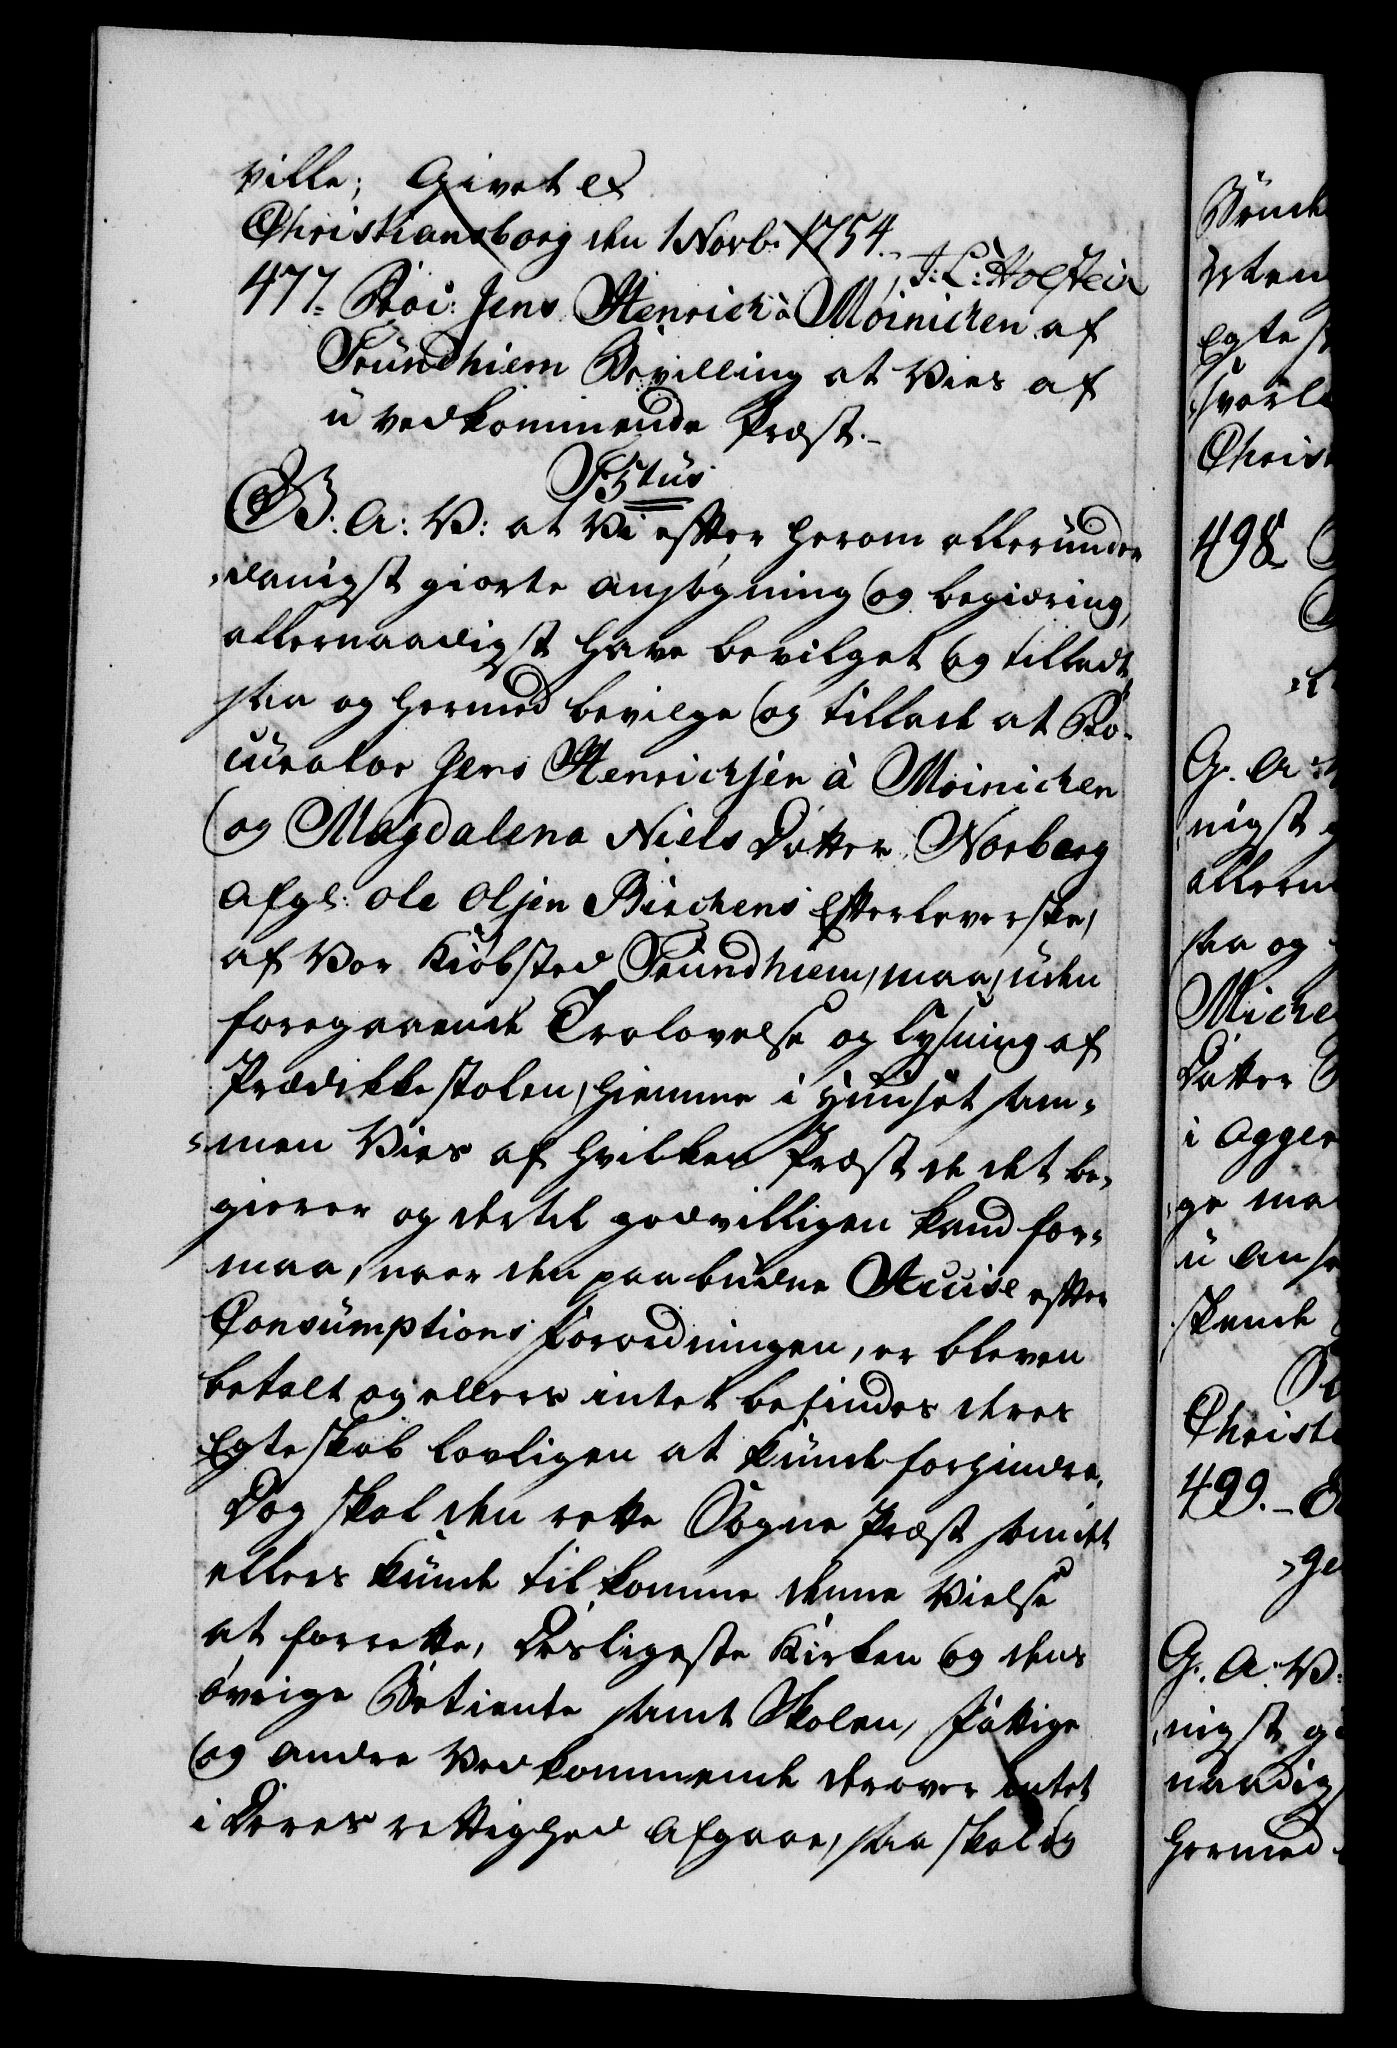 ville; Givet etc
Christiansborg den 1 Novb. 1754.
J: L: Holstein
477. Proc: Jens Henrich à Moinichen af
Trundhiem Bevilling at Vies af
uvedkommende Præst.
F: 5tus
G: A: V: at Vi efter herom allerunder
danigst giorte ansøgning og begiæring,
allernaadigst have bevilget og tilladt
saa og hermed bevilge og tillade at Pro-
curator Jens Henrichsen à Moinichen
og Magdalena Niels Datter Norberg
Afg: Ole Olsen Birchens Efterleverske,
af Vor Kiøbsted Trundhiem, maa, uden
foregaaende Trolovelse og Lysning af
Prædikkestolen, hiemme i Huuset sam-
men Vies af hvilken Præst de det be-
gierer og dertil godvilligen kand for-
maa, naar den paabudne Accise efter
Consumptions Forordningen, er bleven
betalt og ellers intet befindes deres
Egteskab lovligen at kunde forhindre.
Dog skal den rette Sogne Præst som det
ellers kunde tilkomme denne Vielse
at forrette, Desligeste Kirken og dens
øvrige Betiente samt Skolen, Fattige
og andre Vedkommende derover intet
i Deres rettighed Afgaae, saa skal og
498
G. A.
nigst
saa og
Datter
i Agger
499.
G. A. V:
nigst
naadig
hermed